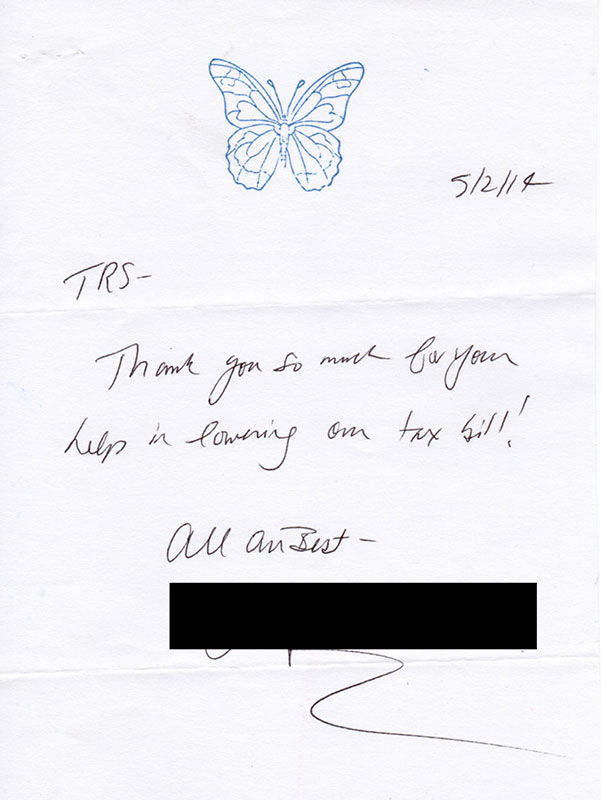 5/2/14
TRS-
Thank you so much for your
help in lowering our tax bill!
All our Best-